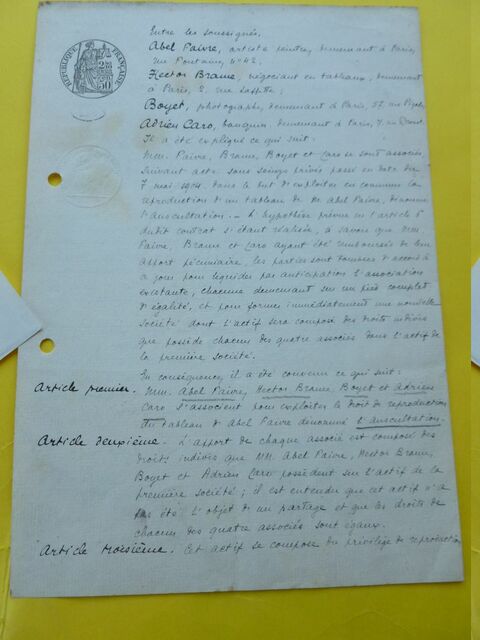 RÉPUBLIQUE FRANÇAISE
Entre les soussignés,
Abel Faivre, artiste peintre, demeurant à Paris,
rue Fontaine, nº 42.
Hector Brame, négociant en tableaux, demeurant
à Paris, 2, rue Laffitte;
Boyet, photographe, demeurant à Paris, 57, rue Pigalle,
Adrien Caro, banquier, demeurant à Paris, 7, rue Drouot.
Il a été expliqué ce qui suit:
MM. Faivre, Brame, Boyet et Caro se sont associés,
suivant acte sous seings privés passé en date du
7 mai 1904, dans le but d'exploiter en commun la
reproduction d'un tableau de M. Abel Faivre, dénommé
l'auscultation. – L'hypothèse prévue en l'article 6
dudit contrat s'étant réalisée, à savoir que MM.
Faivre, Brame et Caro ayant été remboursés de leur
apport pécuniaire, les parties sont tombées d'accord à
ce jour pour liquider par anticipation l'association
existante, chacune demeurant sur un pied complet
d'égalité, et pour former immédiatement une nouvelle
société dont l'actif sera composé des droits indivis
que possède chacun des quatre associés dans l'actif de
la première société.
En conséquence, il a été convenu ce qui suit:
Article premier. MM. Abel Faivre, Hector Brame, Boyet et Adrien
Caro s'associent pour exploiter le droit de reproduction
du tableau d'Abel Faivre dénommé l'auscultation.
Article deuxième. L'apport de chaque associé est composé des
droits indivis que MM. Abel Faivre, Hector Brame,
Boyet et Adrien Caro possèdent sur l'actif de la
première société; il est entendu que cet actif n'a
pas été l'objet d'un partage et que les droits de
chacun des quatre associés sont égaux.
Article troisième. Cet actif se compose du privilège de reproduction